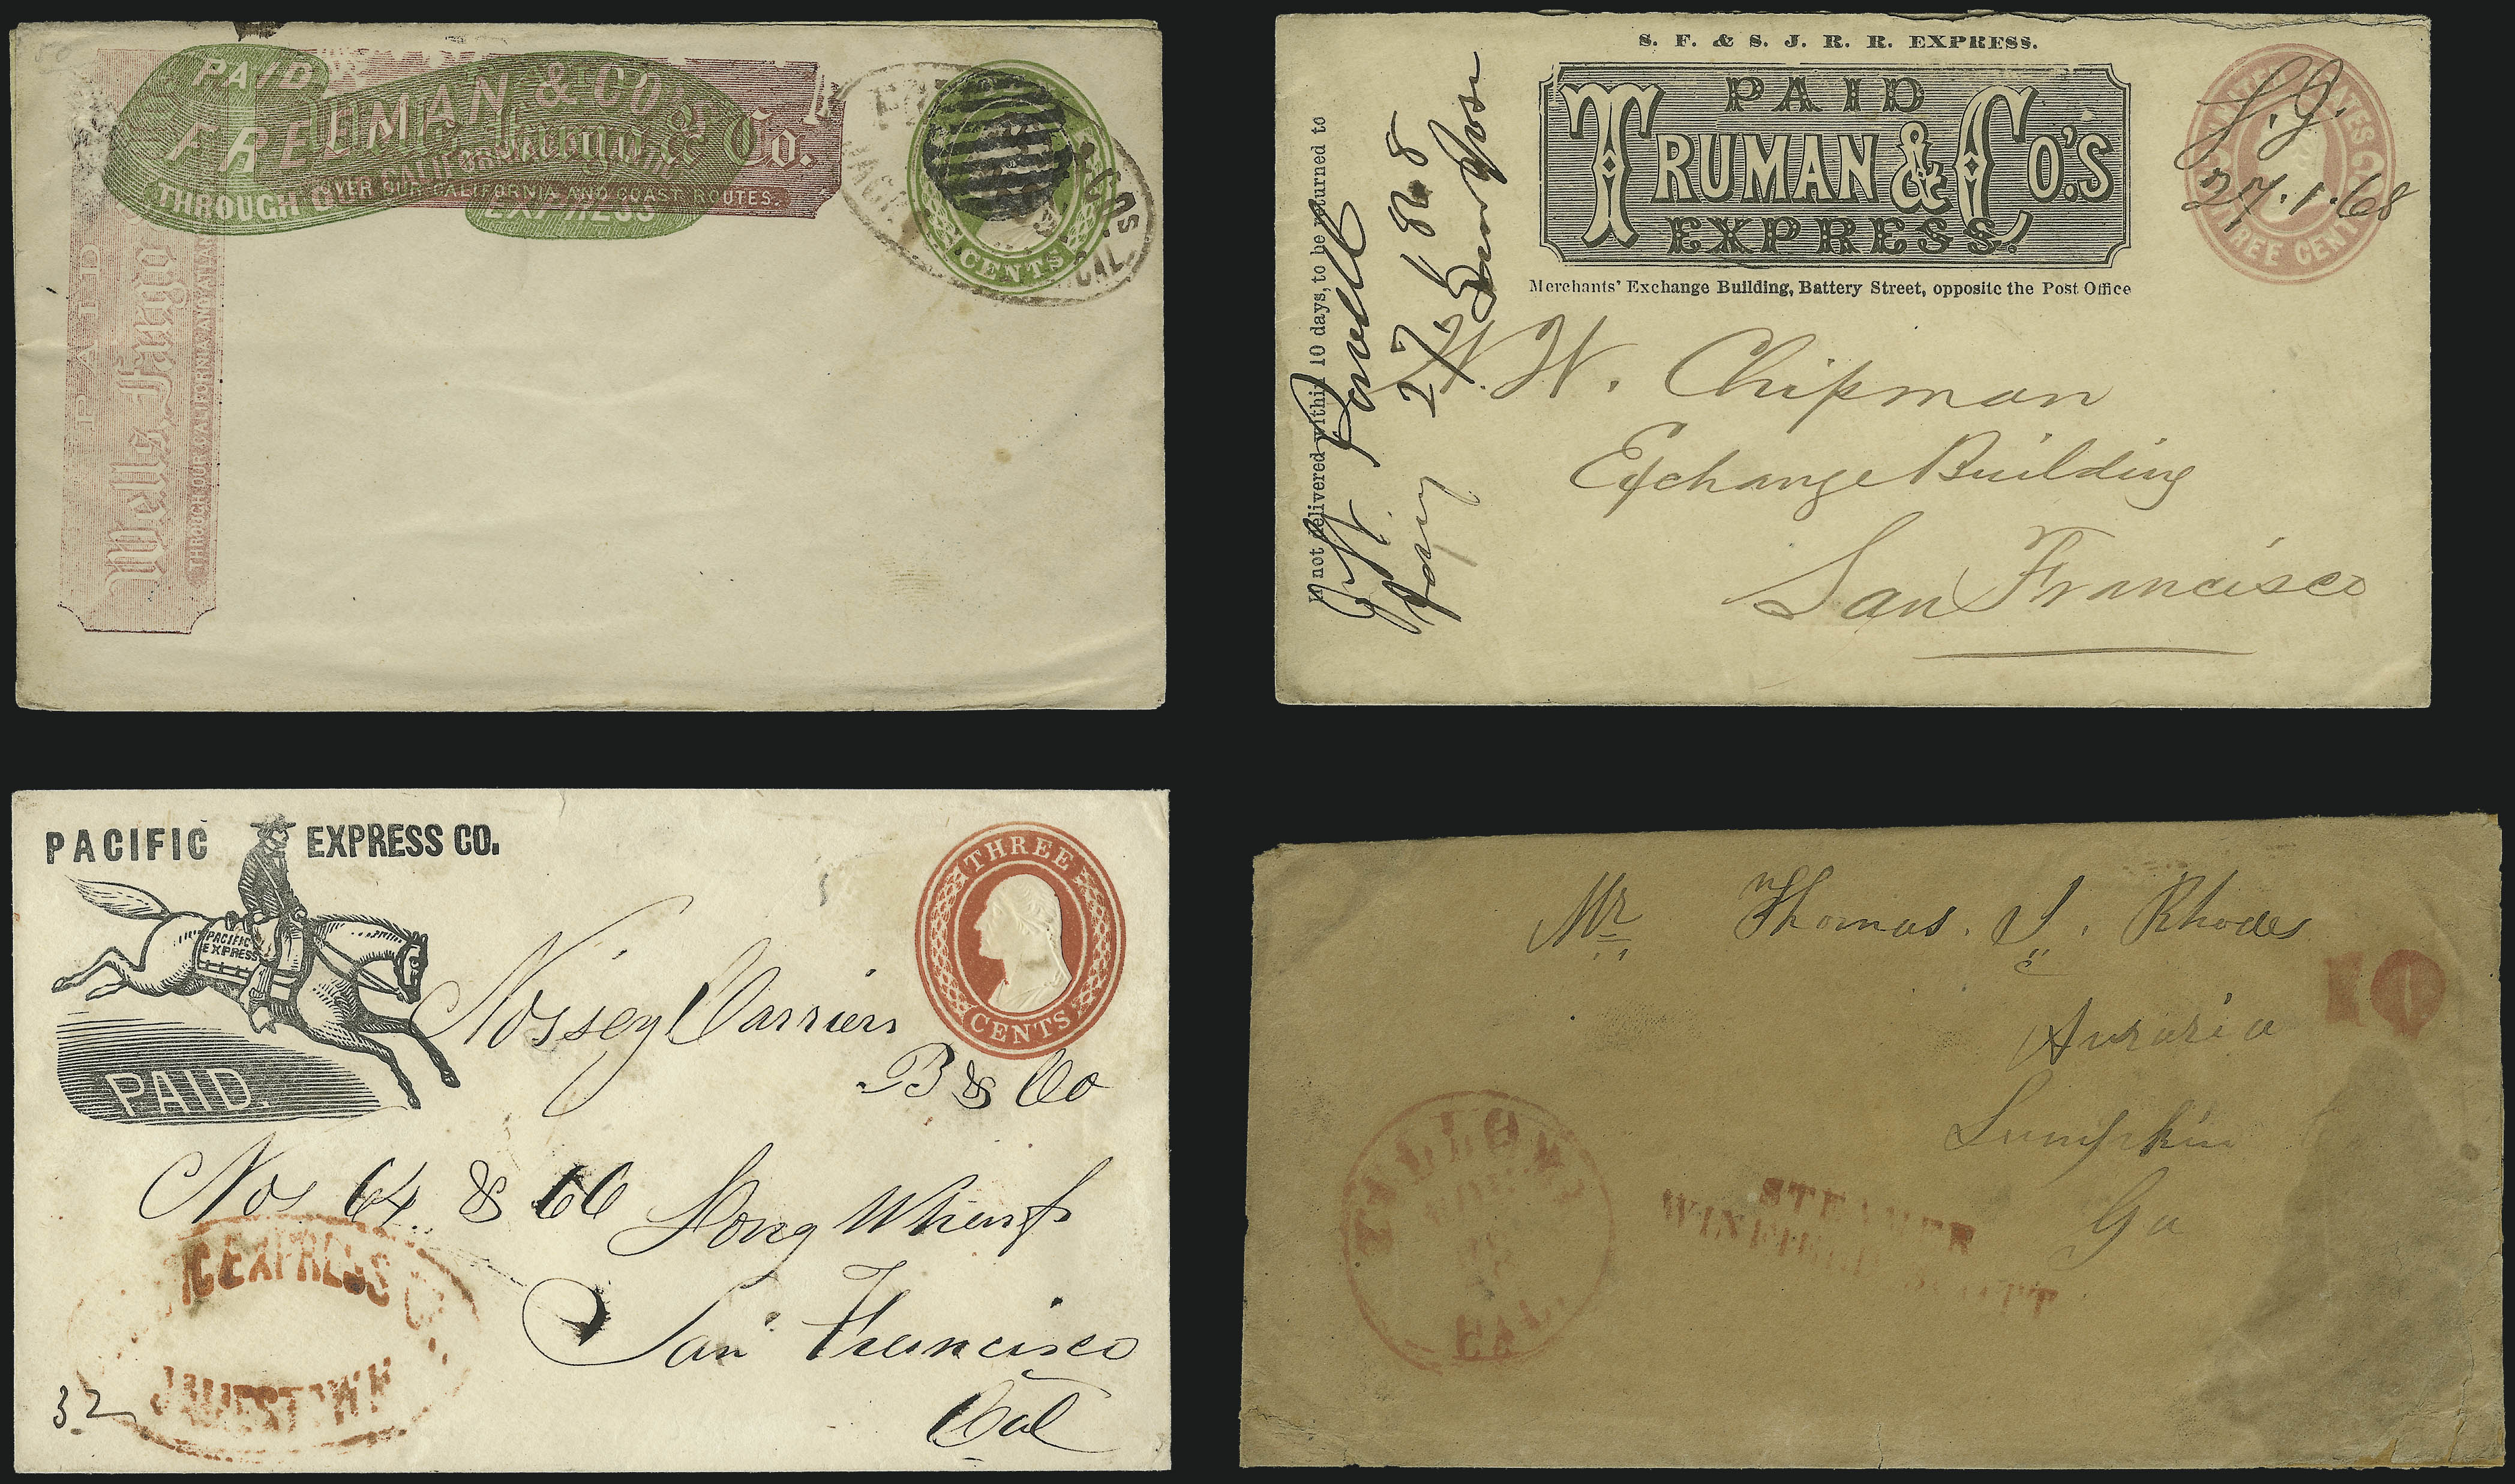 PAID
FREEMAN & CO
Fargo & Co.
OVER OUR CALIFORNIA AND COAST ROUTES.
THROUGH
EXPRESS
PAID
Wells Fargo
THROUGH OUR CALIFORNIA AND ATLAN
CENTS
CAL.
S. F. & S. J. R. R. EXPRESS.
PAID
TRUMAN & CO'S
EXPRESS.
Merchants' Exchange Building, Battery Street, opposite the Post Office
not delivered within 10 days, to be returned to
Powell
27/1 868
San Jose
S.J.
27.1.68
THREE CENTS
W. W. Chipman
Exchange Building
San Francisco
PACIFIC EXPRESS CO.
PACIFIC
EXPRESS
PAID.
THREE
CENTS
Nossey Carriers
B & Co
Nos 64 & 66 Long Wharf
San Francisco
Cal
IC EXPRESS CO
JAMESTOWN
32
Mr Thomas. S. Rhodes
10
Auraria
Lumpkin
Ga
STEAMER
WINFIELD SCOTT
CAL.